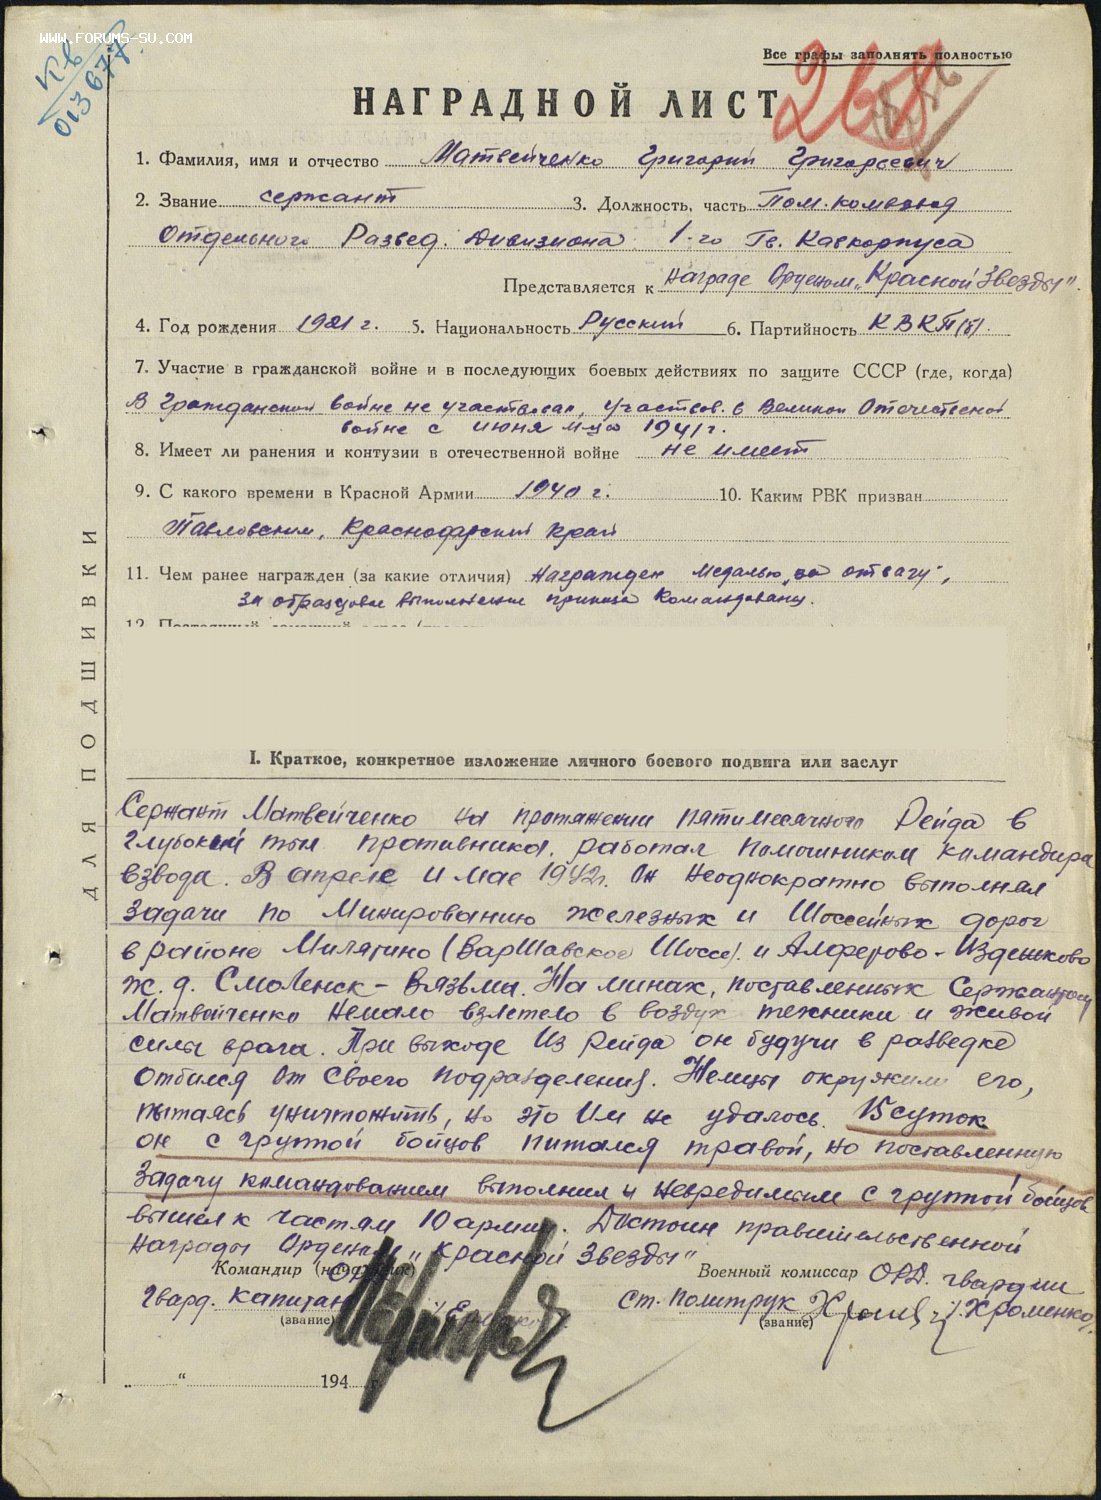 www.forums-su.com
Кв
013677
Все графы заполнять полностью
НАГРАДНОЙ ЛИСТ
1. Фамилия, имя и отчество Матвейченко Григорий Григорьевич
2. Звание сержант 3. Должность, часть Пом. комвзвод
Отдельного Развед. Дивизиона 1-го Гв. Кавкорпуса
Представляется к Награде Орденом „Красной Звезды".
4. Год рождения 1921 г. 5. Национальность Русский 6. Партийность КВКП(б).
7. Участие в гражданской войне и в последующих боевых действиях по защите СССР (где, когда)
В Гражданской войне не участвовал, участвов. в Великой Отечественой
войне с июня м-ца 1941 г.
8. Имеет ли ранения и контузии в отечественной войне не имеет
9. С какого времени в Красной Армии 1940 г. 10. Каким РВК призван
Павловским, Краснодарский край
11. Чем ранее награжден (за какие отличия) Награжден медалью „за отвагу",
за образцовое выполнение приказа командован.
I. Краткое, конкретное изложение личного боевого подвига или заслуг
Сержант Матвейченко на протяжении пятимесячного Рейда в
глубокий тыл противника, работал помошником командира
взвода. В апреле и мае 1942г. он неоднократно выполнял
задачи по Минированию железных и Шоссейных дорог
в районе Милятино (Варшавское Шоссе) и Алферово-Издешково
ж.д. Смоленск-Вязьма. На минах, поставленных Сержантом
Матвейченко немало взлетело в воздух техники и живой
силы врага. При выходе Из Рейда он будучи в разведке
Отбился От Своего подразделения. Немцы окружили его,
пытаясь уничтожить, но это Им не удалось. 15 суток
он с группой бойцов питался травой, но поставленную
Задачу командованием выполнил и невредимым с группой бойцов
вышел к частям 10 армии. Достоин правительственной
Награды Орденом „Красной Звезды"
Командир (начальник) ОРД Военный комиссар ОРД. гвардии
Гвард. Капитан ст. политрук /Хроменко/.
(звание) (звание)
„ " 194 г.
ДЛЯ ПОДШИВКИ